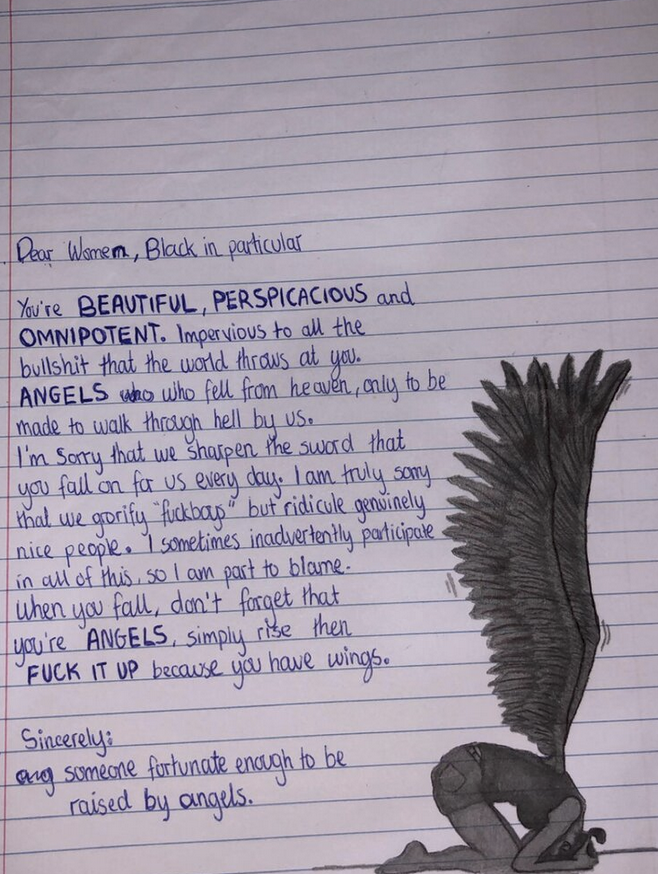 Dear Women, Black in particular
You're BEAUTIFUL, PERSPICACIOUS and
OMNIPOTENT. Impervious to all the
bullshit that the world throws at you.
ANGELS who who fell from heaven, only to be
made to walk through hell by us.
I'm Sorry that we sharpen the sword that
you fall on for us every day. I am truly sorry
that we glorify "fuckboys" but ridicule genuinely
nice people. I sometimes inadvertently participate
in all of this, so I am part to blame.
When you fall, don't forget that
you're ANGELS, simply rise then
FUCK IT UP because you have wings.
Sincerely:
someone fortunate enough to be
raised by angels.